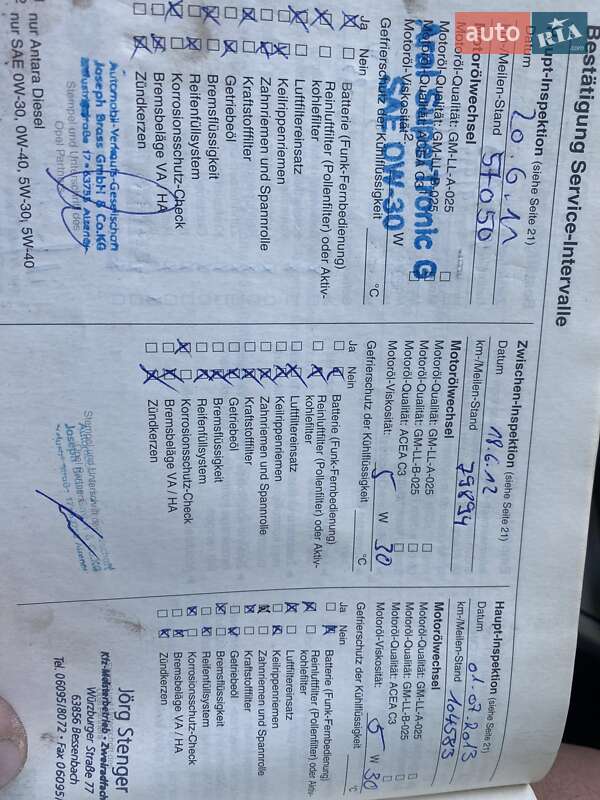 Bestätigung Service-Intervalle
Haupt-Inspektion (siehe Seite 21)
Datum 20.6.11
km-/Meilen-Stand 57050
Motorölwechsel
Motoröl-Qualität: GM-LL-A-025
Motoröl-Qualität: GM-LL-B-025
Motoröl-Viskosität: 2 W
SuperTronic G
SAE 0W-30
Gefrierschutz der Kühlflüssigkeit °C
Ja Nein
Batterie (Funk-Fernbedienung)
Reinluftfilter (Pollenfilter) oder Aktiv-
kohlefilter
Luftfiltereinsatz
Keilrippenriemen
Zahnriemen und Spannrolle
Kraftstofffilter
Getriebeöl
Bremsflüssigkeit
Reifenfüllsystem
Korrosionsschutz-Check
Bremsbeläge VA / HA
Zündkerzen
Stempel und Unterschrift des
Opel Partners
Automobil-Verkaufs-Gesellschaft
Joseph Brass GmbH & Co.KG
Industriestraße 17 • 63755 Alzenau
nur Antara Diesel
nur SAE 0W-30, 0W-40, 5W-30, 5W-40
Zwischen-Inspektion (siehe Seite 21)
Datum 18.6.12
km-/Meilen-Stand 79894
Motorölwechsel
Motoröl-Qualität: GM-LL-A-025
Motoröl-Qualität: GM-LL-B-025
Motoröl-Qualität: ACEA C3
Motoröl-Viskosität: 5 W 30
Gefrierschutz der Kühlflüssigkeit °C
Ja Nein
Batterie (Funk-Fernbedienung)
Reinluftfilter (Pollenfilter) oder Aktiv-
kohlefilter
Luftfiltereinsatz
Keilrippenriemen
Zahnriemen und Spannrolle
Kraftstofffilter
Getriebeöl
Bremsflüssigkeit
Reifenfüllsystem
Korrosionsschutz-Check
Bremsbeläge VA / HA
Zündkerzen
Stempel und Unterschrift des
Haupt-Inspektion (siehe Seite 21)
Datum 01.07.2013
km-/Meilen-Stand 104583
Motorölwechsel
Motoröl-Qualität: GM-LL-A-025
Motoröl-Qualität: GM-LL-B-025
Motoröl-Qualität: ACEA C3
Motoröl-Viskosität: 5 W 30
Gefrierschutz der Kühlflüssigkeit °C
Ja Nein
Batterie (Funk-Fernbedienung)
Reinluftfilter (Pollenfilter) oder Aktiv-
kohlefilter
Luftfiltereinsatz
Keilrippenriemen
Zahnriemen und Spannrolle
Kraftstofffilter
Getriebeöl
Bremsflüssigkeit
Reifenfüllsystem
Korrosionsschutz-Check
Bremsbeläge VA / HA
Zündkerzen
Jörg Stenger
Kfz-Meisterbetrieb • Zweiradfach
Würzburger Straße 77
63856 Bessenbach
Tel. 06095/8072 • Fax 06095/
auto RIA.com